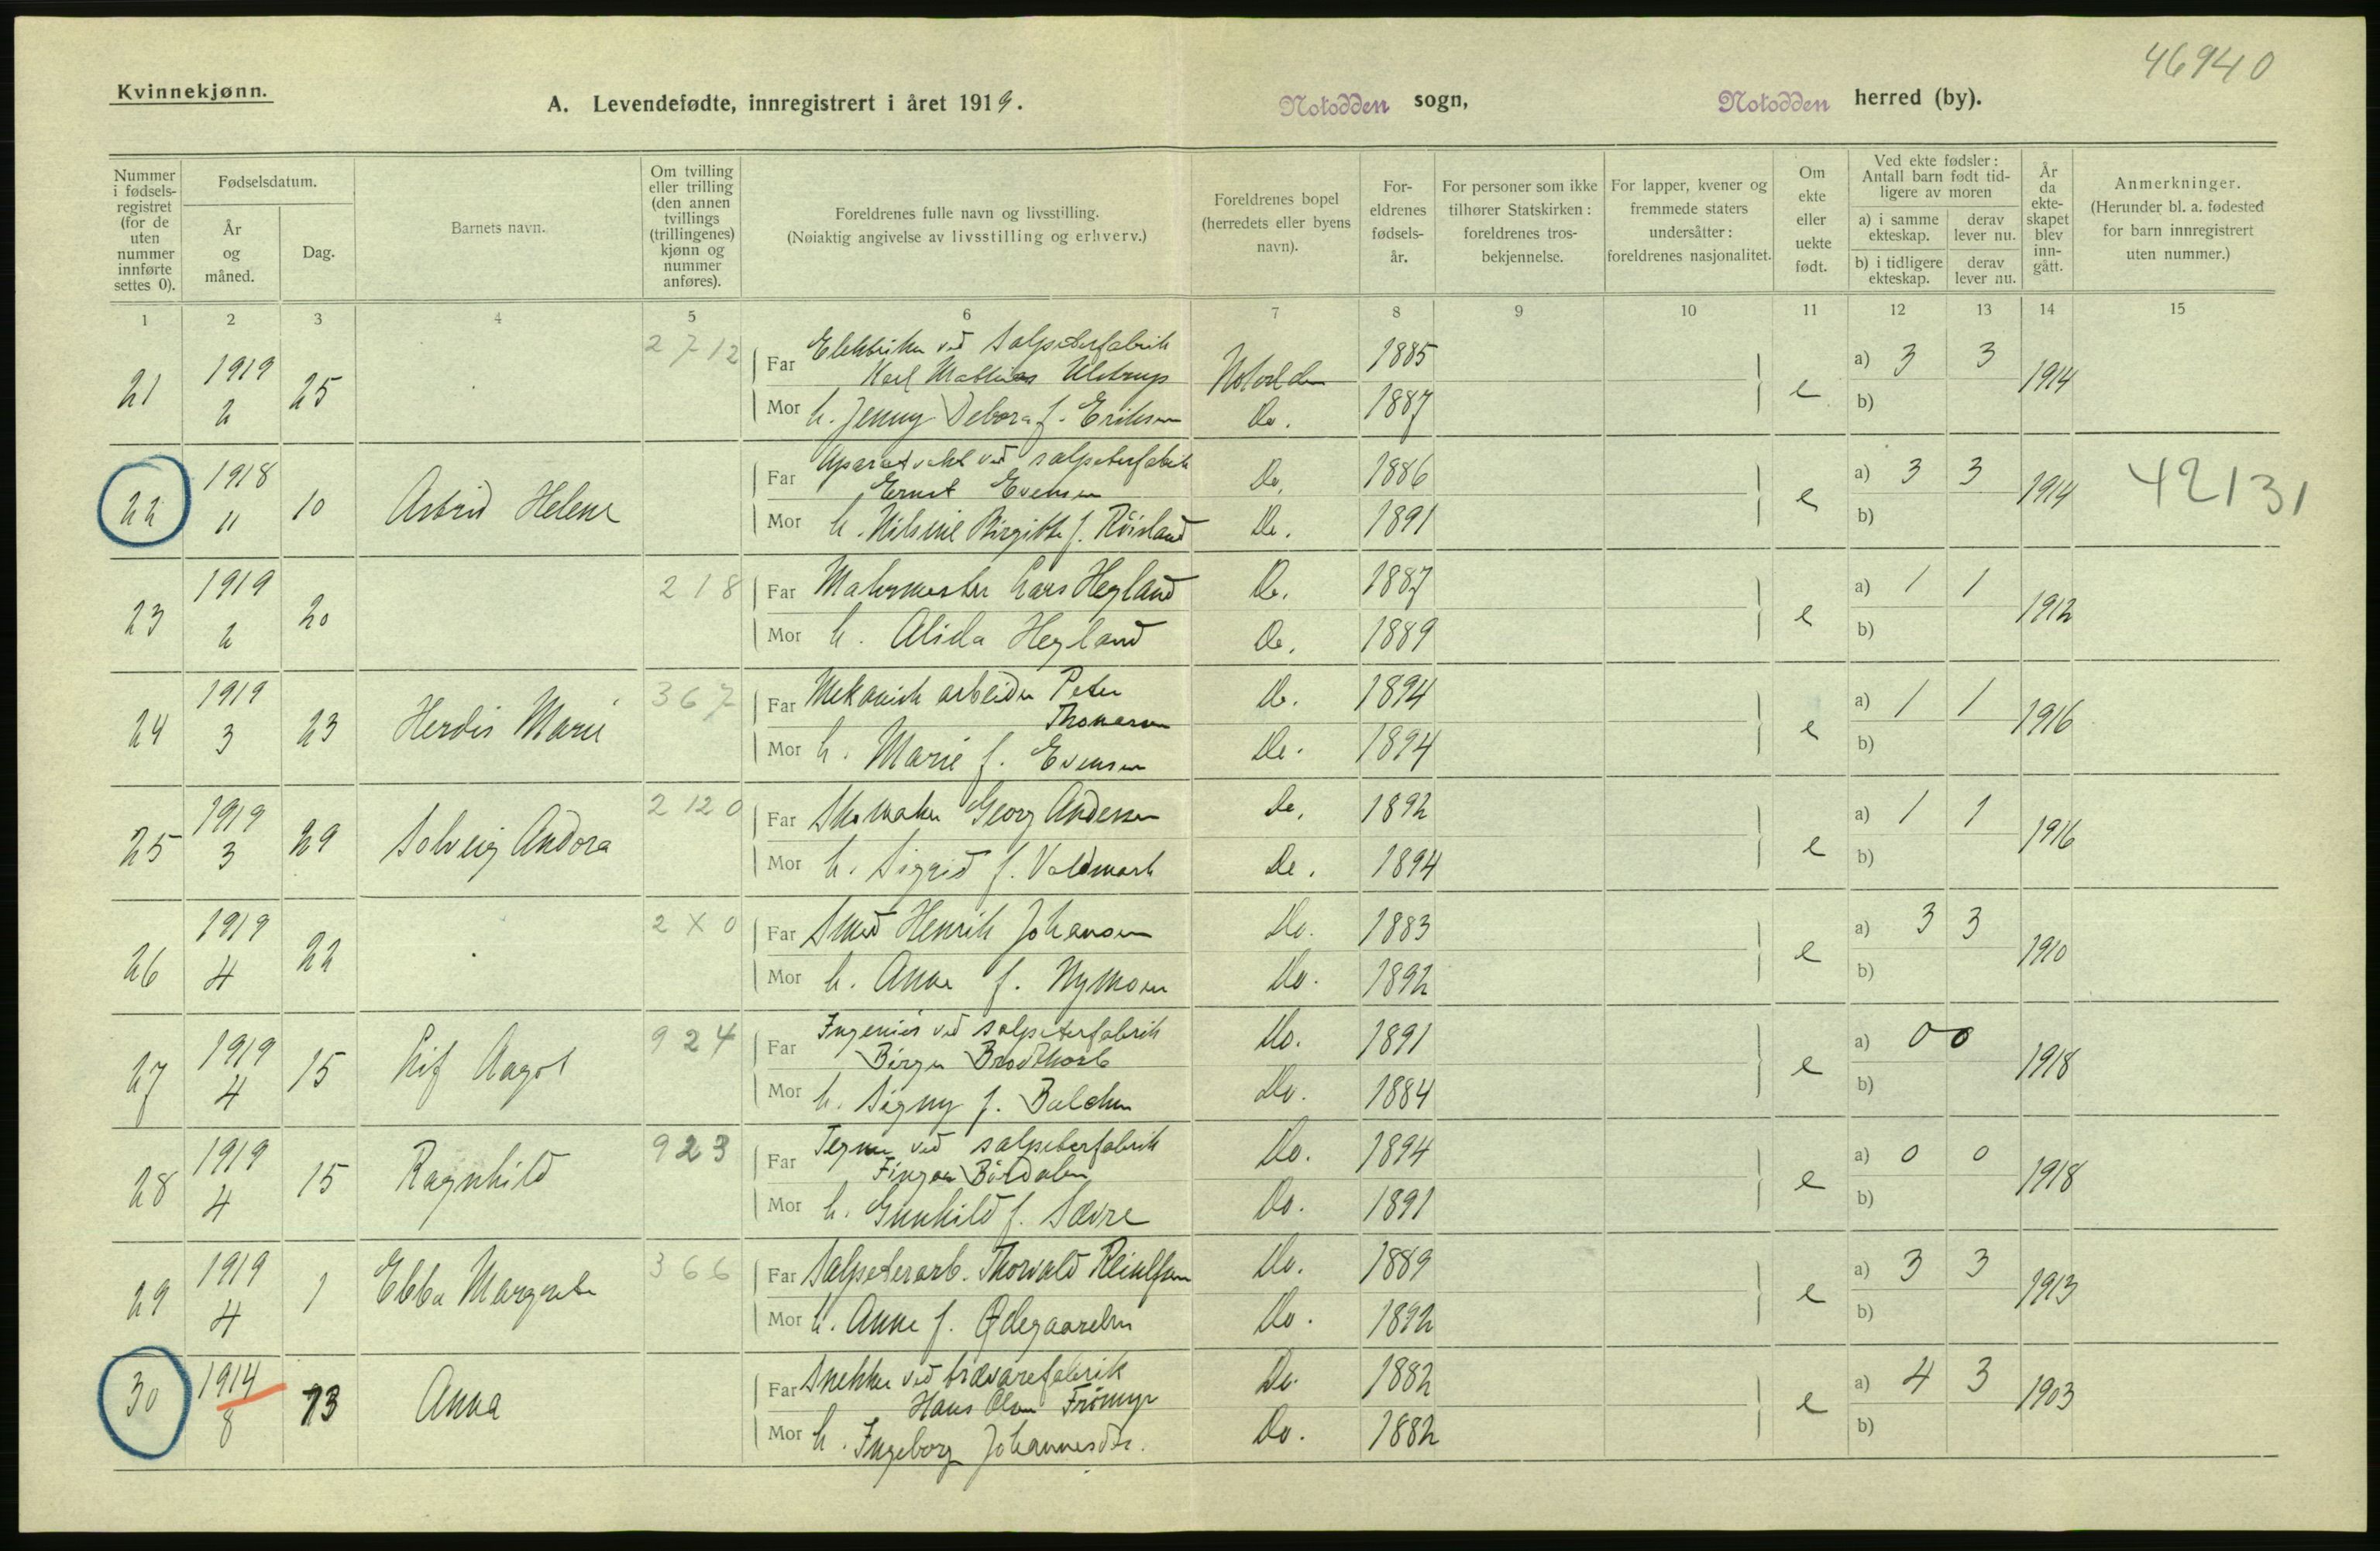 46940
Kvinnekjønn.
A. Levendefødte, innregistrert i året 1919. Notodden sogn, Notodden herred (by).
Nummer i fødsels-registret (for de uten nummer innførte settes 0).
Fødselsdatum.
År og måned.
Dag.
Barnets navn.
Om tvilling eller trilling (den annen tvillings (trillingenes) kjønn og nummer anføres).
Foreldrenes fulle navn og livsstilling.
(Nøiaktig angivelse av livsstilling og erhverv.)
Foreldrenes bopel (herredets eller byens navn).
For-eldrenes fødsels-år.
For personer som ikke tilhører Statskirken: foreldrenes tros-bekjennelse.
For lapper, kvener og fremmede staters undersåtter: foreldrenes nasjonalitet.
Om ekte eller uekte født.
Ved ekte fødsler: Antall barn født tid-ligere av moren
a) i samme ekteskap. derav lever nu.
b) i tidligere ekteskap. derav lever nu.
År da ekte-skapet blev inn-gått.
Anmerkninger.
(Herunder bl. a. fødested for barn innregistrert uten nummer.)
1 2 3 4 5 6 7 8 9 10 11 12 13 14 15
21 1919 2 25 2712 Far Elektriker ved Salpeterfabrik
Karl Mathias Ulstrup Notodden 1885 e a) 3 3 1914
Mor h. Jenny Debora f. Eriksen Do. 1887 b)
22 1918 11 10 Astrid Helene Far Aparatvakt ved salpeterfabrik
Ernst Evensen Do. 1886 e a) 3 3 1914 42131
Mor h. Nilsine Birgitte f. Röisland Do. 1891 b)
23 1919 2 20 218 Far Malermester Lars Hegland Do. 1887 e a) 1 1 1912
Mor h. Alida Hegland Do. 1889 b)
24 1919 3 23 Herdis Marie 367 Far Mekanisk arbeider Peter
Thomassen Do. 1894 e a) 1 1 1916
Mor h. Marie f. Evensen Do. 1894 b)
25 1919 3 29 Solveig Andora 2120 Far Skomaker Georg Andersen Do. 1892 e a) 1 1 1916
Mor h. Sigrid f. Voldmark Do. 1894 b)
26 1919 4 22 2X0 Far Smed Henrik Johansen Do. 1883 e a) 3 3 1910
Mor h. Anna f. Nymoen Do. 1892 b)
27 1919 4 15 Lif Aagot 924 Far Ingeniör ved salpeterfabrik
Börger Brodtkorb Do. 1891 e a) 0 0 1918
Mor h. Signy f. Balchen Do. 1884 b)
28 1919 4 15 Ragnhild 923 Far Tegner ved salpeterfabrik
Do. 1894 e a) 0 0 1918
Mor h. Gunhild f. Sævre Do. 1891 b)
29 1919 4 1 Ebba Margrete 366 Far Salpeterarb. Thorvald Reiulfsen Do. 1889 e a) 3 3 1913
Mor h. Anne f. Ødegaarden Do. 1892 b)
30 1914 8 13 Anna Far Snekker ved trævarefabrik
Hans Olsen Frömyr Do. 1882 e a) 4 3 1903
Mor h. Ingeborg Johannesdtr. Do. 1882 b)